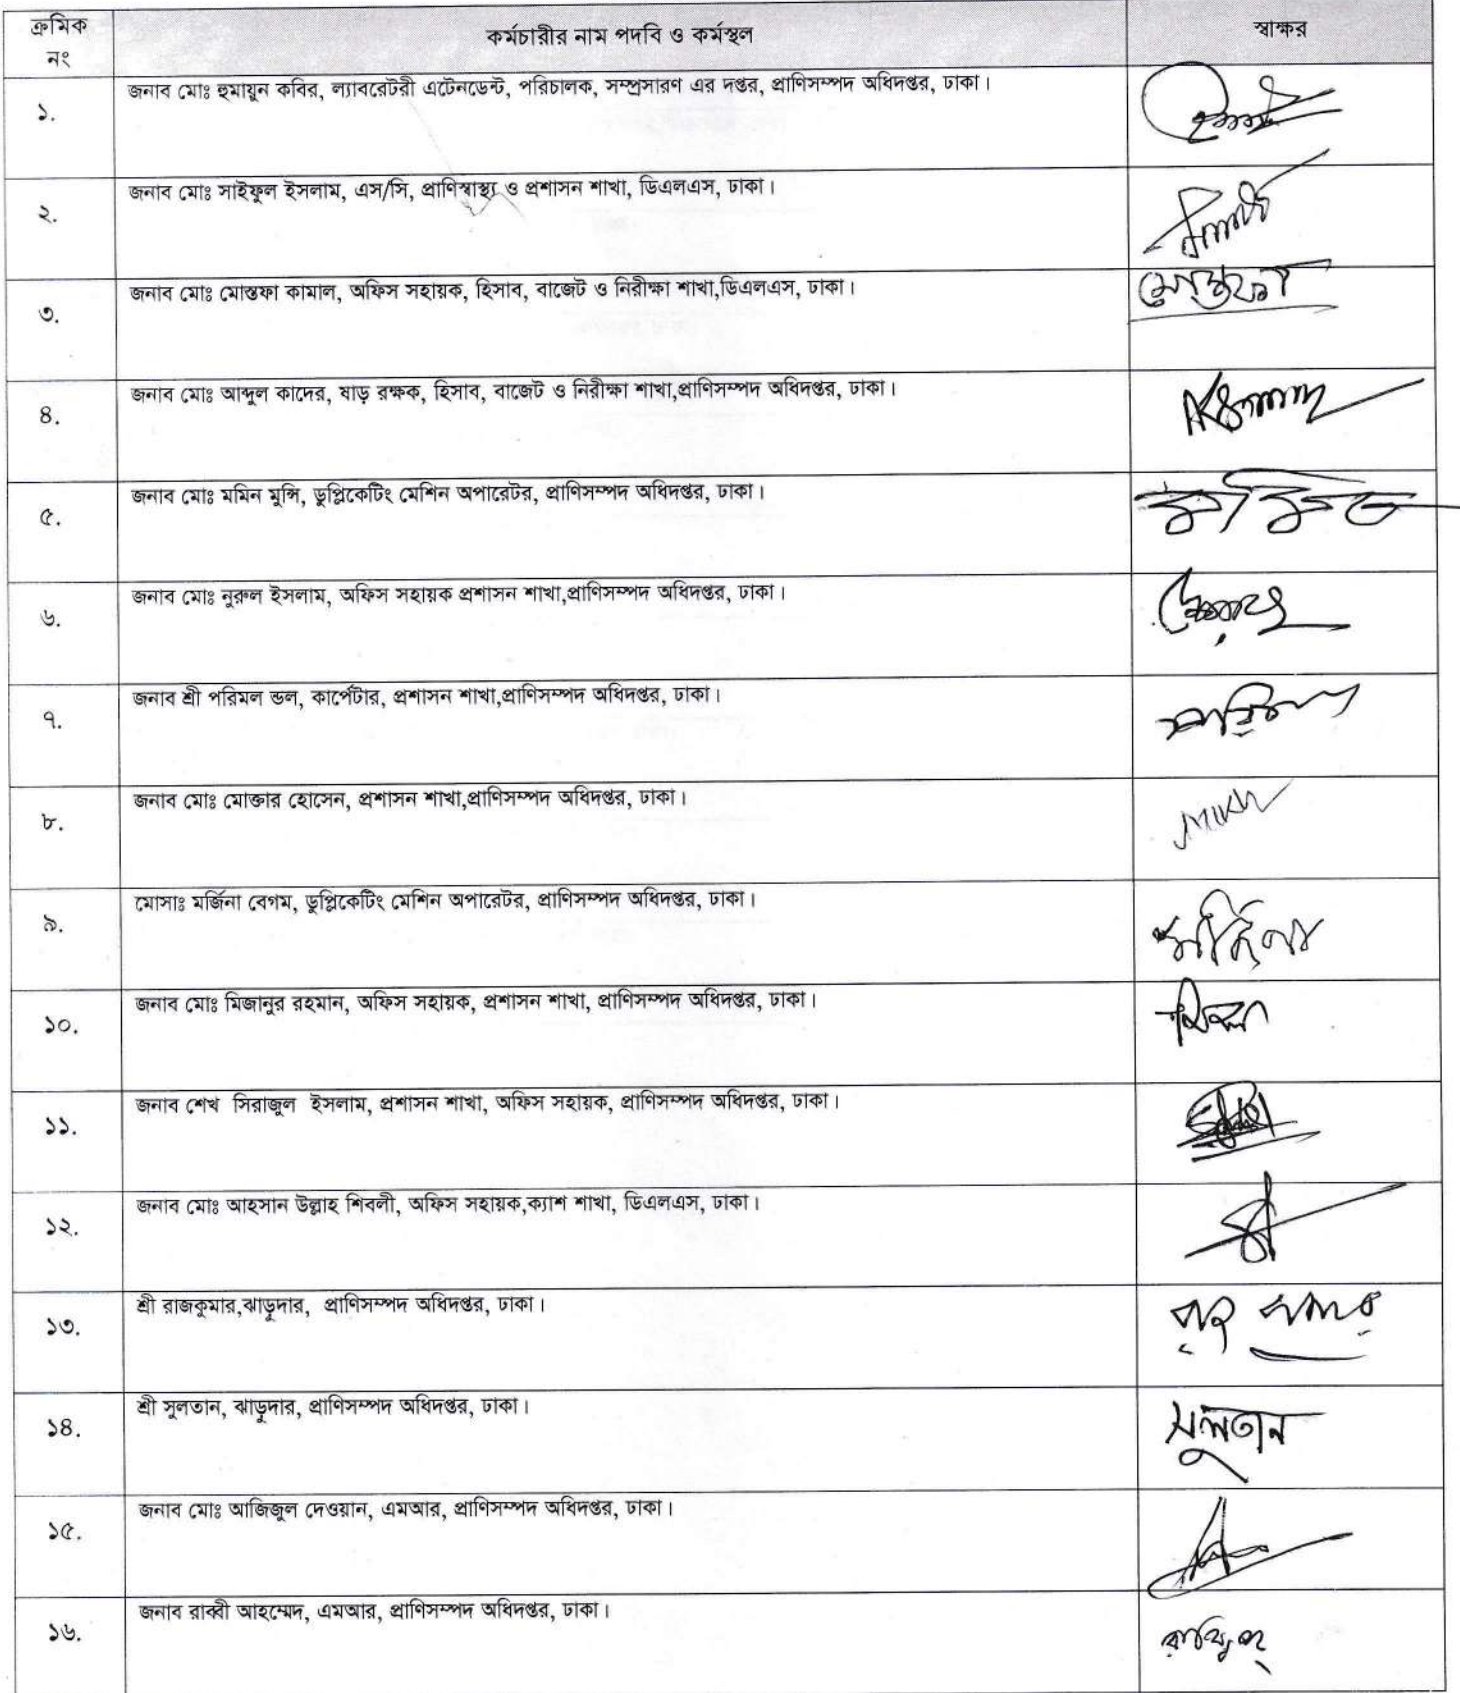 ক্রমিক
নং
কর্মচারীর নাম পদবি ও কর্মস্থল
স্বাক্ষর
১.
জনাব মোঃ হুমায়ুন কবির, ল্যাবরেটরী এটেনডেন্ট, পরিচালক, সম্প্রসারণ এর দপ্তর, প্রাণিসম্পদ অধিদপ্তর, ঢাকা।
২.
জনাব মোঃ সাইফুল ইসলাম, এস/সি, প্রাণিস্বাস্থ্য ও প্রশাসন শাখা, ডিএলএস, ঢাকা।
৩.
জনাব মোঃ মোস্তফা কামাল, অফিস সহায়ক, হিসাব, বাজেট ও নিরীক্ষা শাখা,ডিএলএস, ঢাকা।
মোস্তফা
৪.
জনাব মোঃ আব্দুল কাদের, ষাড় রক্ষক, হিসাব, বাজেট ও নিরীক্ষা শাখা,প্রাণিসম্পদ অধিদপ্তর, ঢাকা।
৫.
জনাব মোঃ মমিন মুন্সি, ডুপ্লিকেটিং মেশিন অপারেটর, প্রাণিসম্পদ অধিদপ্তর, ঢাকা।
৬.
জনাব মোঃ নুরুল ইসলাম, অফিস সহায়ক প্রশাসন শাখা,প্রাণিসম্পদ অধিদপ্তর, ঢাকা।
৭.
জনাব শ্রী পরিমল ভল, কার্পেটার, প্রশাসন শাখা,প্রাণিসম্পদ অধিদপ্তর, ঢাকা।
৮.
জনাব মোঃ মোক্তার হোসেন, প্রশাসন শাখা,প্রাণিসম্পদ অধিদপ্তর, ঢাকা।
৯.
মোসাঃ মর্জিনা বেগম, ডুপ্লিকেটিং মেশিন অপারেটর, প্রাণিসম্পদ অধিদপ্তর, ঢাকা।
মর্জিনা
১০.
জনাব মোঃ মিজানুর রহমান, অফিস সহায়ক, প্রশাসন শাখা, প্রাণিসম্পদ অধিদপ্তর, ঢাকা।
১১.
জনাব শেখ সিরাজুল ইসলাম, প্রশাসন শাখা, অফিস সহায়ক, প্রাণিসম্পদ অধিদপ্তর, ঢাকা।
১২.
জনাব মোঃ আহসান উল্লাহ শিবলী, অফিস সহায়ক,ক্যাশ শাখা, ডিএলএস, ঢাকা।
১৩.
শ্রী রাজকুমার,ঝাড়ুদার, প্রাণিসম্পদ অধিদপ্তর, ঢাকা।
১৪.
শ্রী সুলতান, ঝাড়ুদার, প্রাণিসম্পদ অধিদপ্তর, ঢাকা।
সুলতান
১৫.
জনাব মোঃ আজিজুল দেওয়ান, এমআর, প্রাণিসম্পদ অধিদপ্তর, ঢাকা।
১৬.
জনাব রাব্বী আহম্মেদ, এমআর, প্রাণিসম্পদ অধিদপ্তর, ঢাকা।